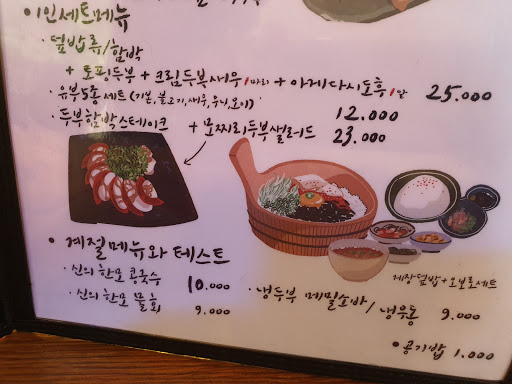 1인세트메뉴
· 덮밥류/함박
+ 토핑두부 + 크림두부새우1마리 + 아게다시도후1알 25.000
· 유부5종세트(기본, 불고기, 새우, 우니, 오이) 12.000
· 두부함박스테이크 + 모찌리두부샐러드 23.000
• 계절메뉴와 테스트
· 신의 한모 콩국수 10.000
· 신의 한모 물회 9.000
게장덮밥 + 오보로세트
· 냉두부 메밀소바 / 냉우동 9.000
• 공기밥 1.000